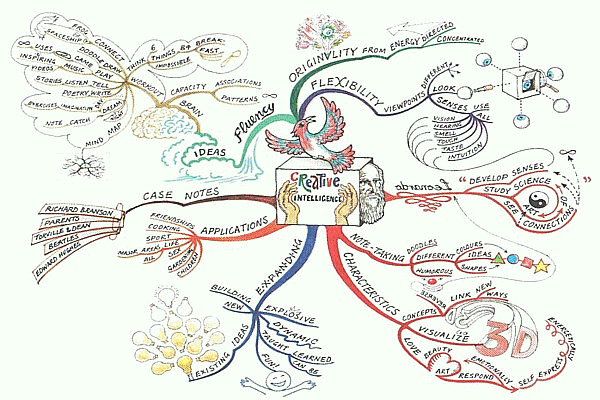 CREATIVE
INTELLIGENCE
ORIGINALITY FROM ENERGY DIRECTED
CONCENTRATED
FLEXIBILITY
VIEWPOINTS DIFFERENT
LOOK
SENSES USE
ALL
VISION
HEARING
SMELL
TOUCH
TASTE
INTUITION
Leonardo
" DEVELOP SENSES "
STUDY SCIENCE
OF
ART
SEE CONNECTIONS
NOTE-TAKING
DOODLES
DIFFERENT
HUMOROUS
COLOURS
IDEAS
SHAPES
CHARACTERISTICS
CONCEPTS
LINK NEW
WAYS
VISUALIZE
3D
LOVE
BEAUTY
ART
EMOTIONALLY
RESPOND
SELF EXPRESS
ENERGETICALLY
EXPANDING
BUILDING
NEW
EXPLOSIVE
DYNAMIC
TAUGHT LEARNED
CAN BE
FUN!
EXISTING IDEAS
APPLICATIONS
FRIENDSHIPS
COOKING
SPORT
MAJOR AREAS LIFE
ALL
SEX
GARDENING
CHILDREN
CASE NOTES
RICHARD BRANSON
PARENTS
TORVILLE & DEAN
BEATLES
EDWARD HUGHES
Fluency
IDEAS
BRAIN
CAPACITY
ASSOCIATIONS
PATTERNS
WORKOUT
THINK
6 THINGS B4 BREAK-
FAST
IMPOSSIBLE
CONNECT
FROG
SPACESHIP
DOODLE DRAW
USES
GAME PLAY
INSPIRING
VIDEOS MUSIC
STORIES, LISTEN, TELL
POETRY, WRITE
EXERCISES, IMAGINATION
DAY DREAM
NOTE CATCH
MIND MAP